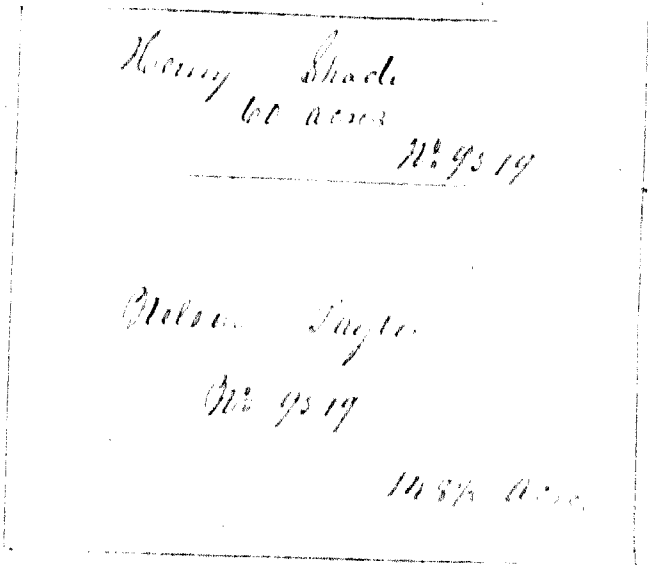 Henry Shade
60 acres
No 9519
Nelson Taylor
No 9519
148½ Acres